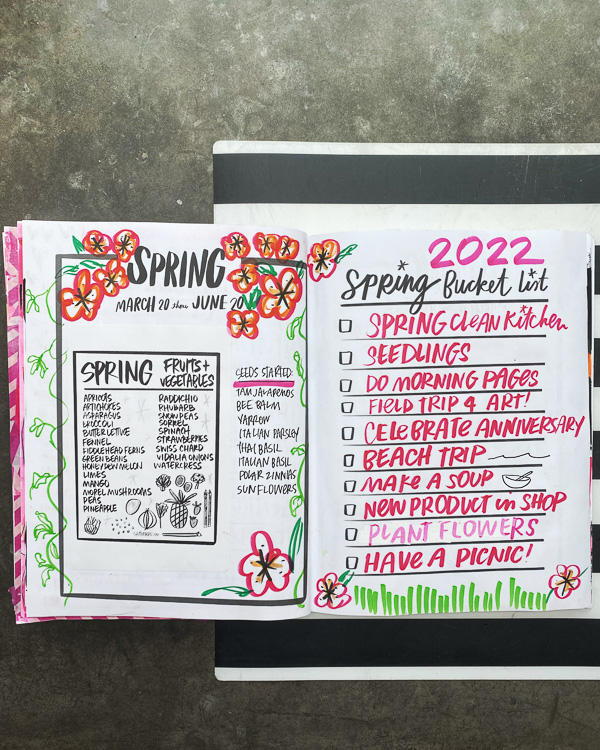 SPRING
MARCH 20 thru JUNE 20
SPRING FRUITS + VEGETABLES
APRICOTS
ARTICHOKES
ASPARAGUS
BROCCOLI
BUTTER LETTUCE
FENNEL
FIDDLEHEAD FERNS
GREEN BEANS
HONEYDEW MELON
LIMES
MANGO
MOREL MUSHROOMS
PEAS
PINEAPPLE
RADICCHIO
RHUBARB
SNOW PEAS
SORREL
SPINACH
STRAWBERRIES
SWISS CHARD
VIDALIA ONIONS
WATERCRESS
SEEDS STARTED:
JALAPENOS
BEE BALM
YARROW
ITALIAN PARSLEY
THAI BASIL
ITALIAN BASIL
POLAR ZINNIAS
SUNFLOWERS
2022
Spring Bucket List
SPRING CLEAN KitcHen
SEEDLINGS
DO MORNING PAGES
FIELD TRIP 4 ART!
CELEBRATE ANNIVERSARY
BEACH TRIP
MAKE A SOUP
NEW PRODUCT in SHOP
PLANT FLOWERS
HAVE A PICNIC!